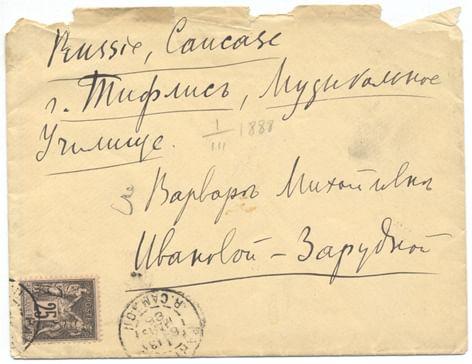 Russie, Caucase
г. Тифлисъ, Музыкальное
Училище.
1/III 1888
Варваръ Михайловнъ
Ивановой-Зарудной
25
R. CAMBON